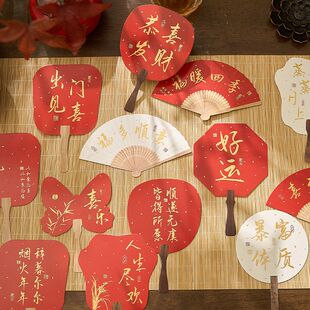 恭喜
发财
出门
见喜
福暖四季
蒸蒸
日上
福多顺意
好运
喜乐
顺遂无虞
皆得所愿
暴富
体质
人生
尽欢
烟火年年